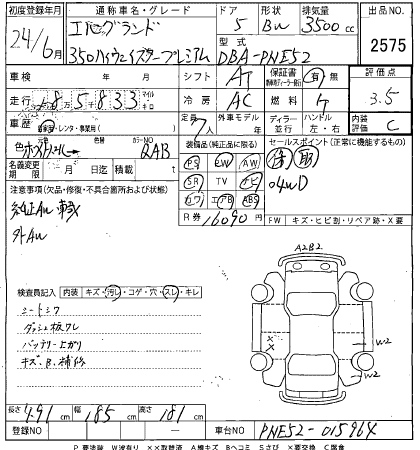 初度登録年月 通称車名・グレード ドア 形状 排気量 出品NO.
24/6月 エルグランド 5 Bw 3500cc
350ハイウェイスタープレミアム 型式 DBA-PNE52 2575
車検 年 月 シフト AT 保証書 有・無 評価点
走行 85833 マイル キロ 冷房 AC 燃料 ケ 3.5
車歴 自家用・レンタ・事業用( ) 定員 7人 外車モデル 年 ディーラー 並行 ハンドル 左・右 内装 C
色 色替 カラーNO QAB
名義変更期限 月 日迄 積載 t
装備品(純正品に限る) セールスポイント(正常に機能するもの)
PS PW AW
SR TV ナビ
カワ エアB ABS
取
4WD
R券 16090円
FW キズ・ヒビ割・リペア跡・X要
注意事項(欠品・修復・不具合箇所および状態)
純正AW 車載
外AW
A2B2
検査員記入 内装 キズ・汚レ・コゲ・穴・スレ・キレ
シートシワ
ダッシュ板ワレ
バッテリー上ガリ
キズ.B.補修
X
X
W2
W2
長さ 491cm 幅 185cm 高さ 181cm
登録NO 車台NO PNE52-015964
P 要塗装 W波有り ××取替済 A線キズ Bヘコミ Sさび ×要交換 C腐食